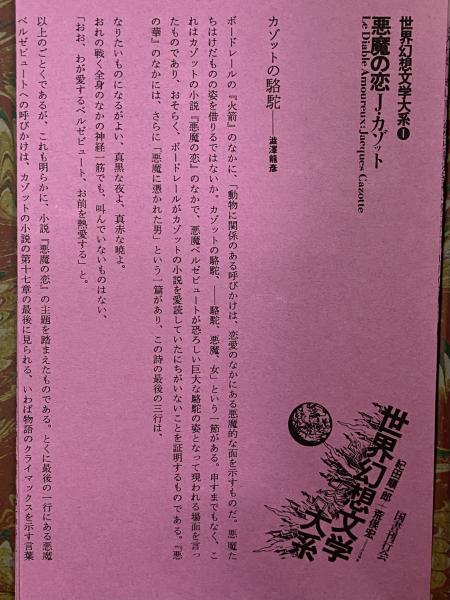 世界幻想文学大系 1
悪魔の恋 J・カゾット
Le Diable Amoureux: Jacques Cazotte
カゾットの駱駝——澁澤龍彦
ボードレールの『火箭』のなかに、「動物に関係のある呼びかけは、恋愛のなかにある悪魔的な面を示すものだ。悪魔た
ちはけだものの姿を借りるではないか。カゾットの駱駝、——駱駝、悪魔、女」という一節がある。申すまでもなく、こ
れはカゾットの小説『悪魔の恋』のなかで、悪魔ベルゼビュートが恐ろしい巨大な駱駝の姿となって現われる場面を言っ
たものであり、おそらく、ボードレールがカゾットの小説を愛読していたにちがいないことを証明するものである。『悪
の華』のなかには、さらに「悪魔に憑かれた男」という一篇があり、この詩の最後の三行は、
なりたいものになるがよい、真黒な夜よ、真赤な暁よ。
おれの戦く全身のなかの神経一筋でも、叫んでいないものはない、
「おお、わが愛するベルゼビュート、お前を熱愛する」と。
以上のごとくであるが、これも明らかに、小説『悪魔の恋』の主題を踏まえたものである。とくに最後の一行にある悪魔
ベルゼビュートへの呼びかけは、カゾットの小説の第十七章の最後に見られる、いわば物語のクライマックスを示す言葉
国書刊行会
紀田順一郎
荒俣宏
世界幻想文学大系